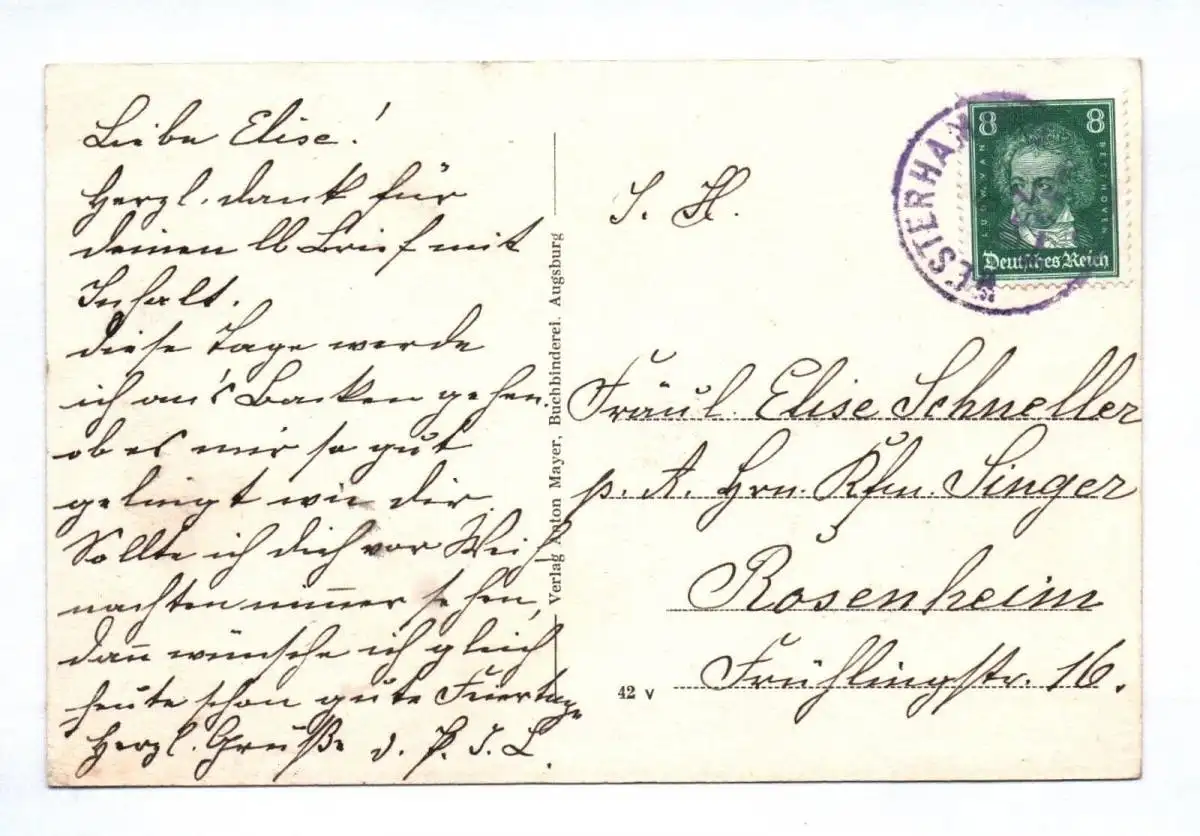 Liebe Elise!
Herzl. dank für
deinen lb Brief mit
Inhalt.
diese Tage werde
ich an's Backen gehen.
ob es mir so gut
gelingt wie dir.
Sollte ich dich vor Weih
nachten nimmer sehen,
dann wünsche ich gleich
heute schon gute Feiertage
Herzl. Grüße d.
S. H.
8 8
LUDW. VAN BEETHOVEN
Deutsches Reich
WESTERHAM
Fräul. Elise Schneller
p. A. Hrn. Kfm. Singer
Rosenheim
Frühlingstr. 16.
Verlag Anton Mayer, Buchbinderei. Augsburg
42 v